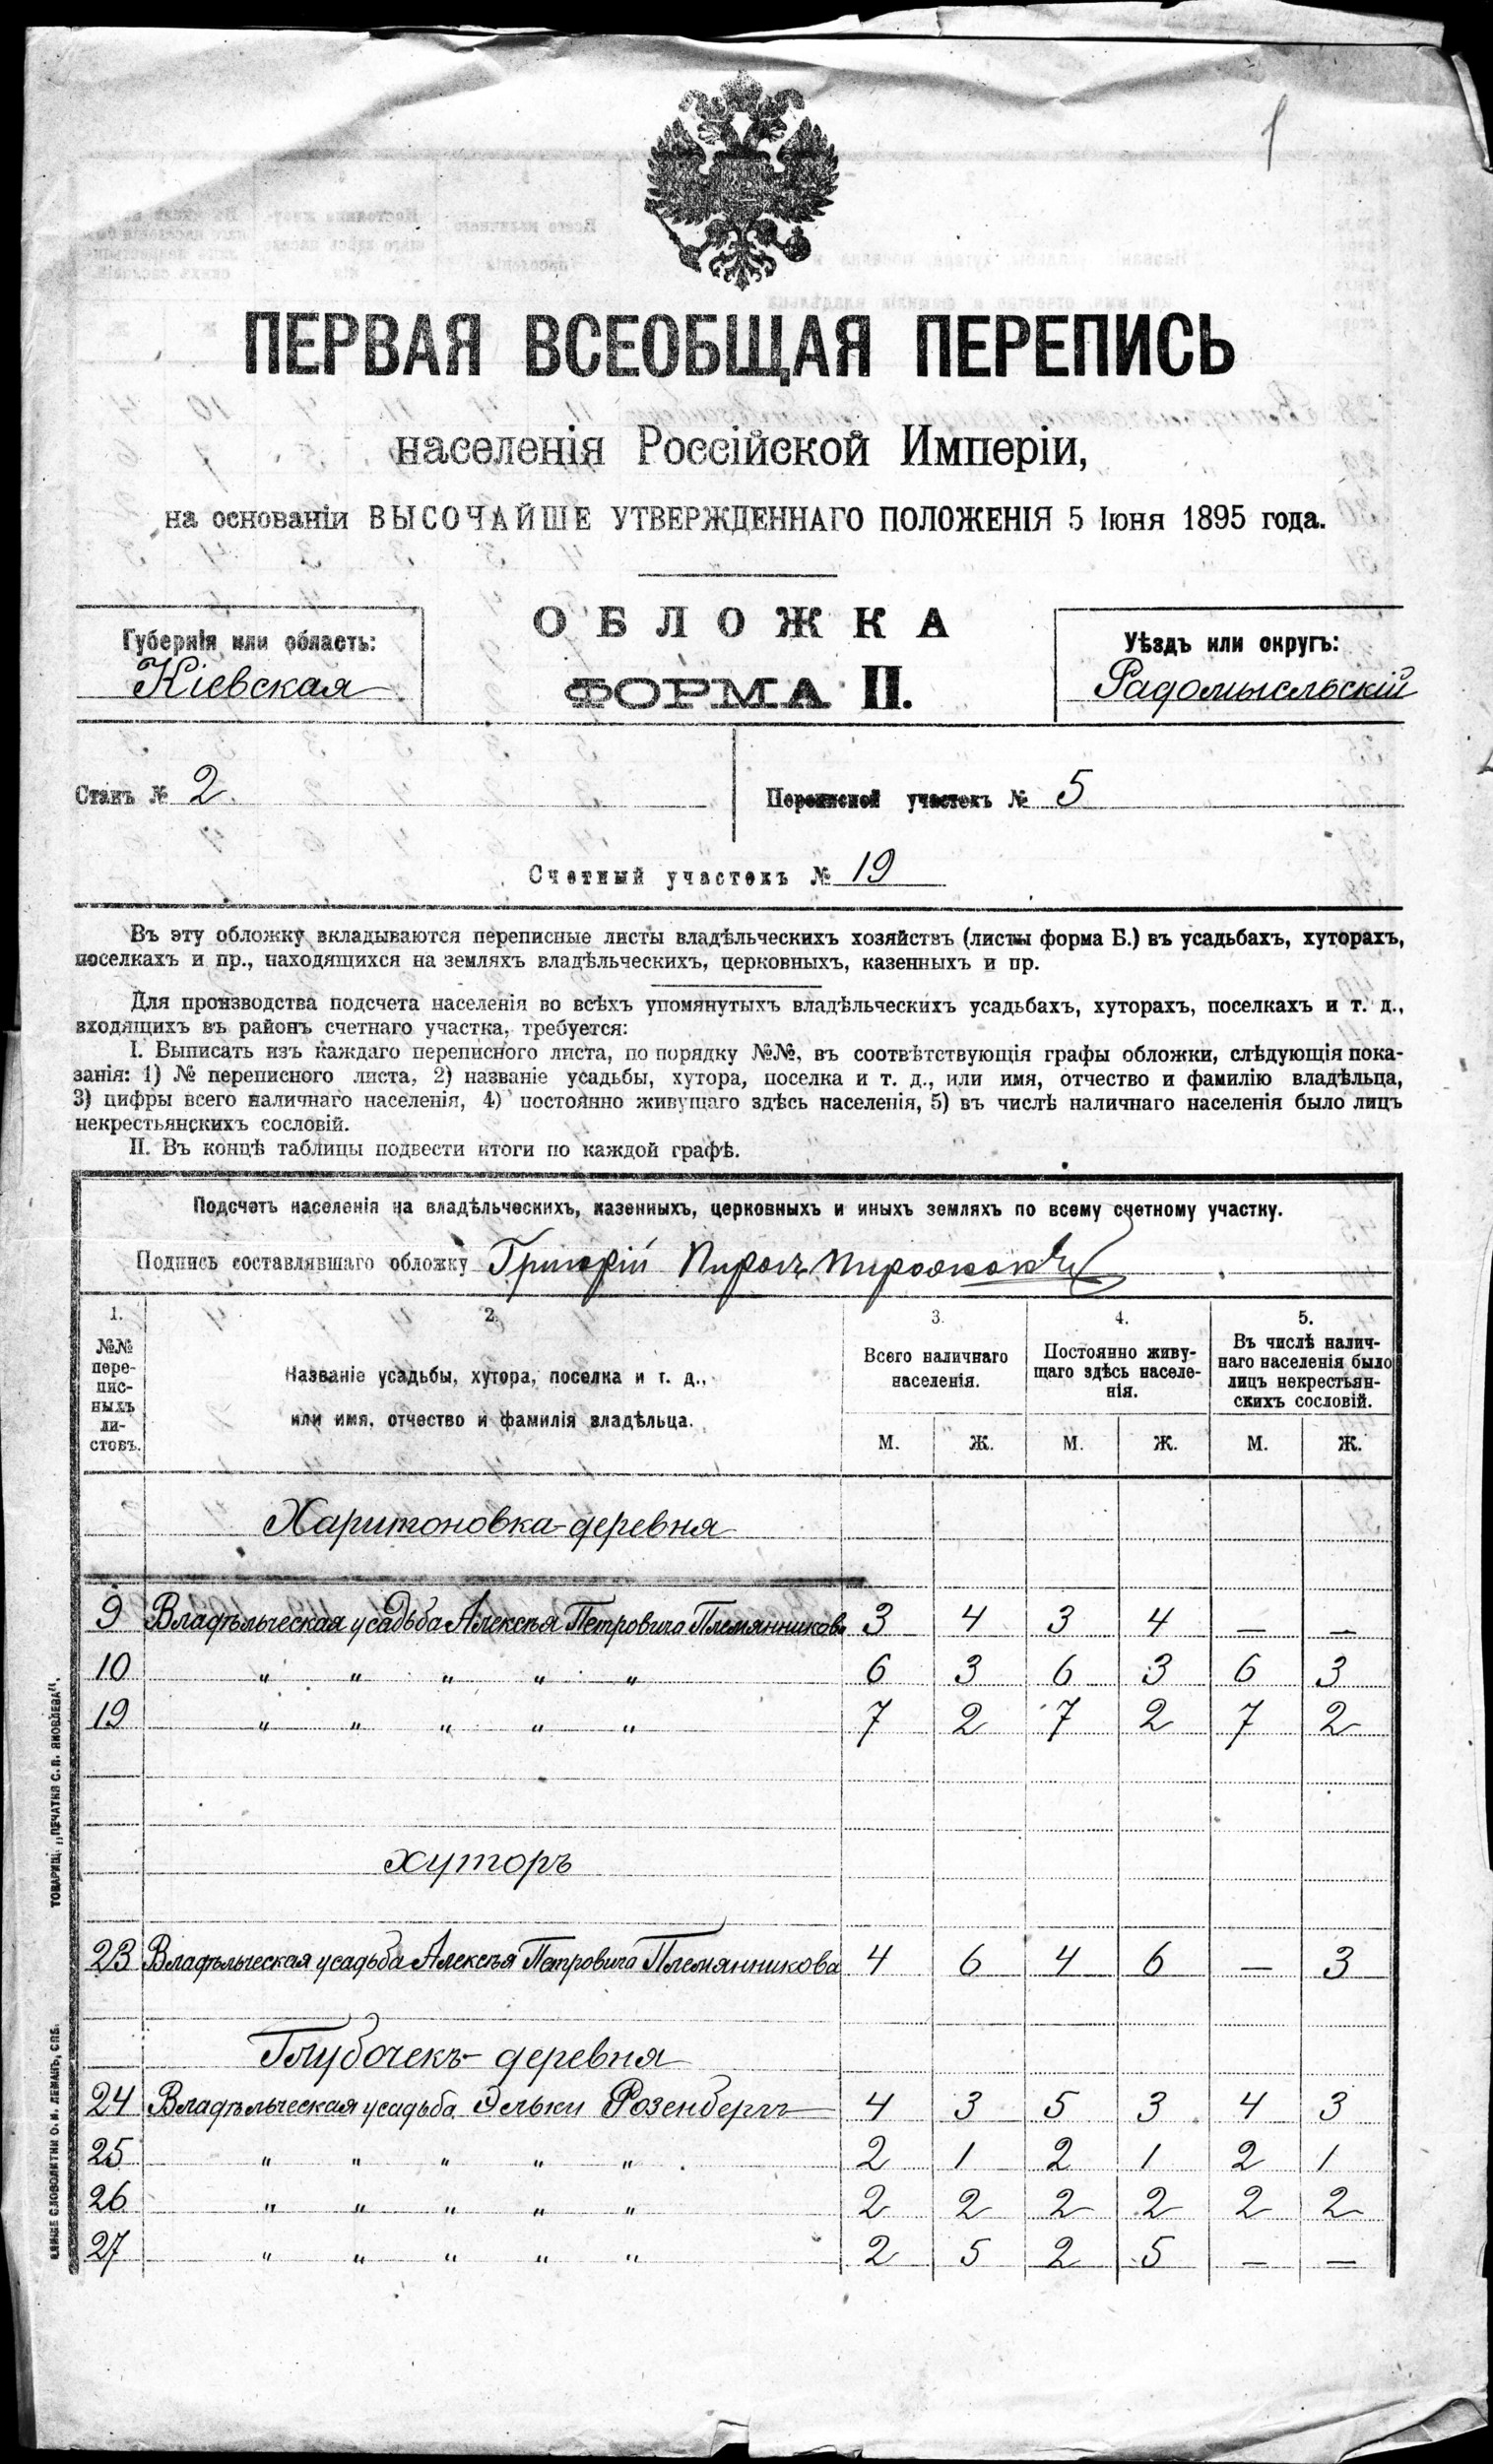 1
ПЕРВАЯ ВСЕОБЩАЯ ПЕРЕПИСЬ
населенія Россійской Имперіи,
на основаніи ВЫСОЧАЙШЕ УТВЕРЖДЕННАГО ПОЛОЖЕНІЯ 5 Іюня 1895 года.
ОБЛОЖКА
ФОРМА II.
Губернія или область:
Кіевская
Уѣздъ или округъ:
Радомысльскій
Станъ № 2.
Переписной участокъ № 5
Счетный участокъ № 19
Въ эту обложку вкладываются переписные листы владѣльческихъ хозяйствъ (листы форма Б.) въ усадьбахъ, хуторахъ,
поселкахъ и пр., находящихся на земляхъ владѣльческихъ, церковныхъ, казенныхъ и пр.
Для производства подсчета населенія во всѣхъ упомянутыхъ владѣльческихъ усадьбахъ, хуторахъ, поселкахъ и т. д.,
входящихъ въ районъ счетнаго участка, требуется:
I. Выписать изъ каждаго переписного листа, по порядку №№, въ соотвѣтствующія графы обложки, слѣдующія пока-
занія: 1) № переписного листа, 2) названіе усадьбы, хутора, поселка и т. д., или имя, отчество и фамилію владѣльца,
3) цифры всего наличнаго населенія, 4) постоянно живущаго здѣсь населенія, 5) въ числѣ наличнаго населенія было лицъ
некрестьянскихъ сословій.
II. Въ концѣ таблицы подвести итоги по каждой графѣ.
Подсчетъ населенія на владѣльческихъ, казенныхъ, церковныхъ и иныхъ земляхъ по всему счетному участку.
Подпись составлявшаго обложку Григорій
1. 2. 3. 4. 5.
№№ пере- пис- ныхъ ли- стовъ.
Названіе усадьбы, хутора, поселка и т. д.,
или имя, отчество и фамилія владѣльца.
Всего наличнаго населенія.
Постоянно живу- щаго здѣсь населе- нія.
Въ числѣ налич- наго населенія было лицъ некрестьян- скихъ сословій.
М. Ж. М. Ж. М. Ж.
Харитоновка-деревня
9 Владѣльческая усадьба Алексѣя Петровича Племянникова 3 4 3 4 — —
10 " " " " " 6 3 6 3 6 3
19 " " " " " 7 2 7 2 7 2
хуторъ
23 Владѣльческая усадьба Алексѣя Петровича Племянникова 4 6 4 6 — 3
Глубочекъ-деревня
24 Владѣльческая усадьба Эльки Розенбергъ 4 3 5 3 4 3
25 " " " " " 2 1 2 1 2 1
26 " " " " " 2 2 2 2 2 2
27 " " " " " 2 5 2 5 — —
ТОВАРИЩ. „ПЕЧАТНЯ С. П. ЯКОВЛЕВА“.
КЛИШЕ СЛОВОЛИТНИ О. И. ЛЕМАНЪ, СПБ.